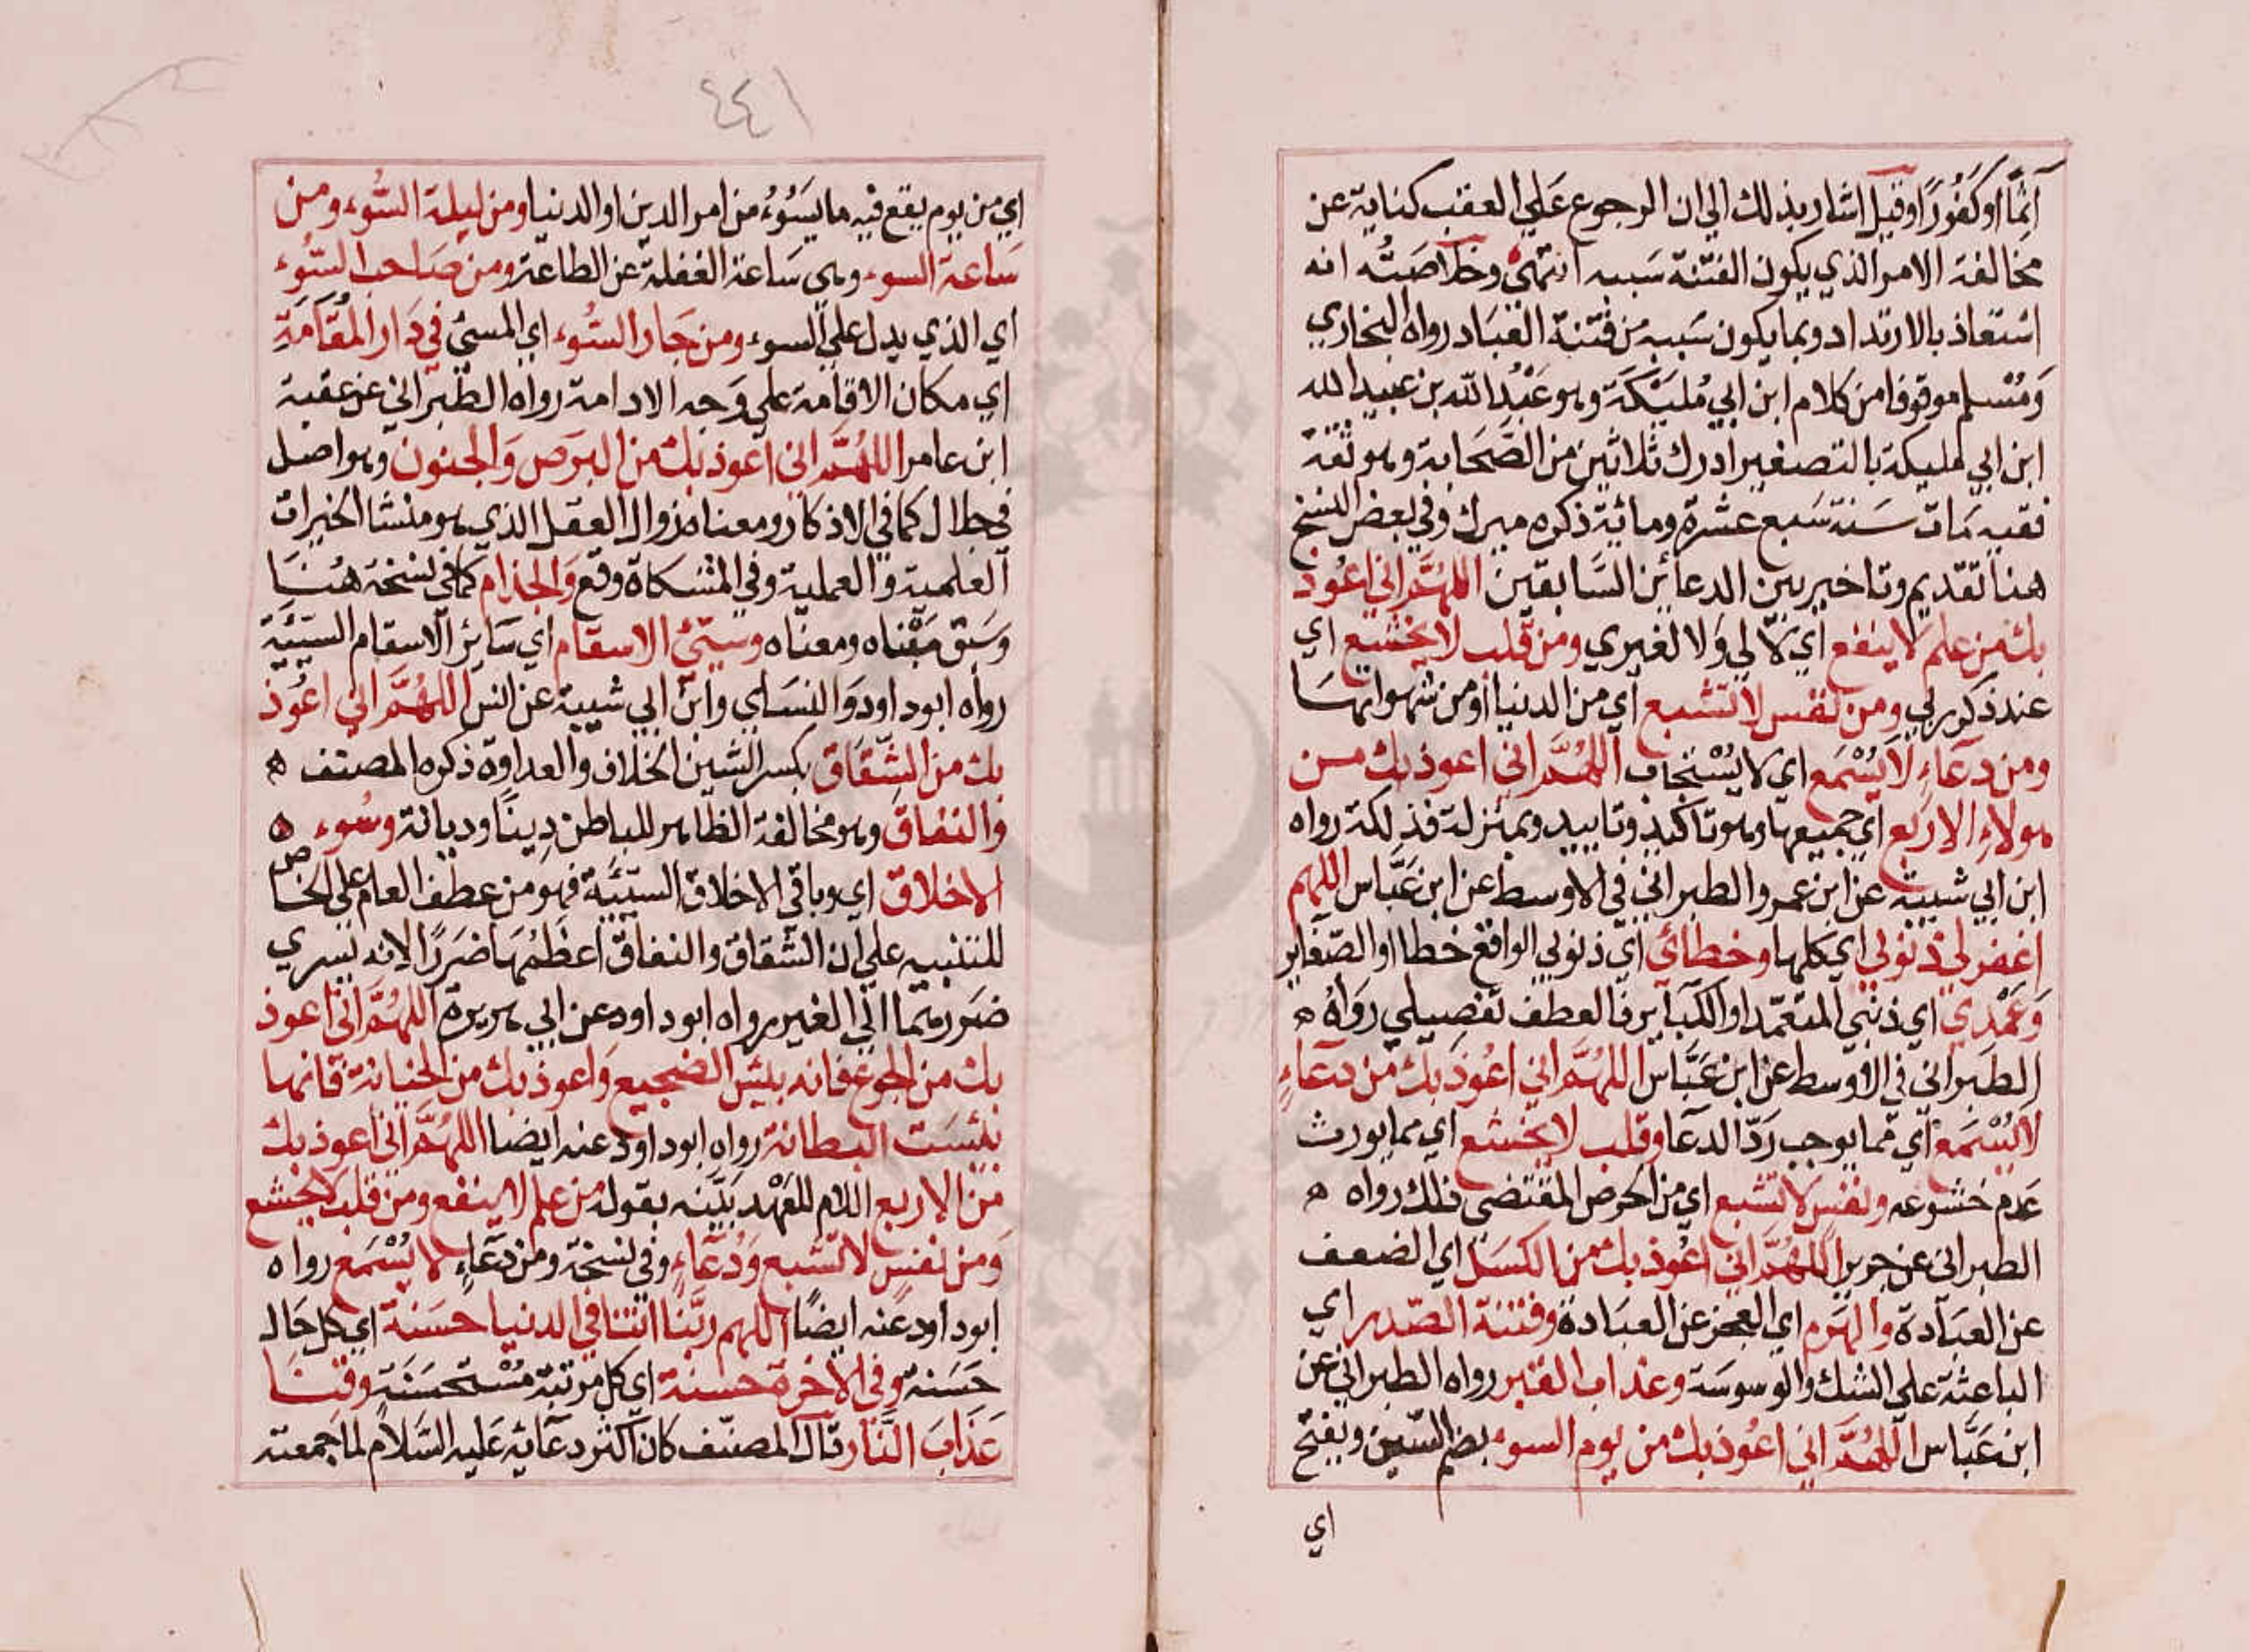 آثما او كَفُورًا وقيل اشار بذلك الي ان الرجوع عَلي العقب كناية عن
مخالفة الامر الذي يكون الفتنة سَببه انتهى وخلاصَتُه انه
استعاذ بالارتداد وبما يكون سَببه من فتنة العبَاد رواه البخاري
وَمُسْلم موقوفا من كلام ابن ابي مُلَيْكَة وهو عَبْدُ الله بن عبيد الله
ابن ابي مليكة بالتصغير ادرك ثلاثين من الصَّحَابة وهو ثقة
فقيه مَات سَنة سَبع عشرة ومائة ذكره ميرك وفي بعض النسخ
هنا تقديم وتاخير بين الدعائين السَّابقين اللهُمَّ اني اعُوذ
بك من علم لا ينفع اي لا لي وَلا لغيري ومن قلب لا يخشع اي
عند ذكر ربي ومن نفس لا تشبع اي من الدنيا او من شهواتهَا
ومن دعَاءٍ لا يُسْمَع اي لا يُسْتجَاب اللهُمَّ اني اعوذ بك مسن
هولاءِ الاربَع اي جميعها وهو تاكيد وتاييد وبمنزلة فذلكة رواه
ابن ابي شيبة عن ابن عمر والطبراني في الاوسط عن ابن عَبَّاس اللهم
اغفر لي ذنوبي اي كلها وخطائي اي ذنوبي الواقع خطا او الصّغاير
وَعَمْدي اي ذنبي المتعمّد او الكبَاير فالعطف تفصيلي رَوَاهُ ه
الطبراني في الاوسط عن ابن عَبَّاس اللهُمَّ اني اعُوذ بك من دعَاءٍ
لا يُسْمَع اي مما يوجب رَدّ الدعا وقلب لا يخشع اي مما يورث
عَدم خشوعه ونفس لا تشبع اي من الحرص المقتضي ذلك رواه ه
الطبراني عن جرير اللهُمَّ اني اعُوذ بك من الكسَل اي الضعف
عن العبَادة والهَرم اي العجز عن العبَادة وفتنة الصّدر اي
الباعثة علي الشك والوسوسَة وعذاب القبر رواه الطبراني عن
ابن عَبَّاس اللهُمَّ اني اعُوذ بك من يوم السوء بضم السّين ويفتح
اي
٤٤١
اي من يوم يقع فيه ما يسَُوءُ من امر الدين او الدنيا ومن ليلة السُّوء ومن
سَاعة السوء وهي سَاعة الغفلة عن الطاعة ومن صَاحب السُّوء
اي الذي يدل علي السوء ومن جَار السُّوء اي المسئ في دَار المُقَامَةِ
اي مكان الاقامة علي وَجه الادامة رواه الطبراني عن عقبة
ابن عامر اللهُمَّ اني اعوذ بك من البرَص وَالجنون وهو اصل
في كما في الاذكار ومعناه زوال العقل الذي هو منشا الخيرات
العلمية والعملية وفي المشكاة وقع وَالجذام كما في نسخة هُنَا
وَسَبق مَبْناه ومعناه وسيّئ الاسقام اي سَائر الاسقام السّيّئة
رواه ابو داود وَالنسَاي وابن ابي شيبة عن انس اللهُمَّ اني اعُوذ
بك من الشّقاق بكسر الشين الخلاف والعداوة ذكره المصنف ه
وَالنفاق وهو مخالفة الظاهر للباطن دِينًا وديانة وسُوء ه
الاخلاق اي وباقي الاخلاق السيّئَة فهو من عطف العام علي الخاص
للتنبيه علي ان الشقاق والنفاق اعظمُهمَا ضَررًا لانه يسري
ضَررهما الي الغير رواه ابو داود عن ابي هريرة اللهُمَّ اني اعوذ
بك من الجوع فانه بئس الضجيع وَاعوذ بك من الخيانة فانها
بئسَت البطانة رواه ابو داود عنه ايضا اللهُمَّ اني اعوذ بك
من الاربع اللام للعَهْد بَيّنه بقوله من علم لا ينفع ومن قلب لا يخشع
وَمن نفس لا تشبع وَدُعَاءٍ وفي نسخة ومن دعَاءٍ لا يُسْمَع رواه
ابو داود عَنه ايضًا اللهم ربَّنا اتنا في الدنيا حسَنة اي كل حَال
حَسَنة وفي الاخرة حسَنة اي كل مرتبة مُسْتحسَنَة وقنَا
عَذابَ النَّار قال المصنّف كان اكثر دعَائه عَليه السَّلام لما جمعته